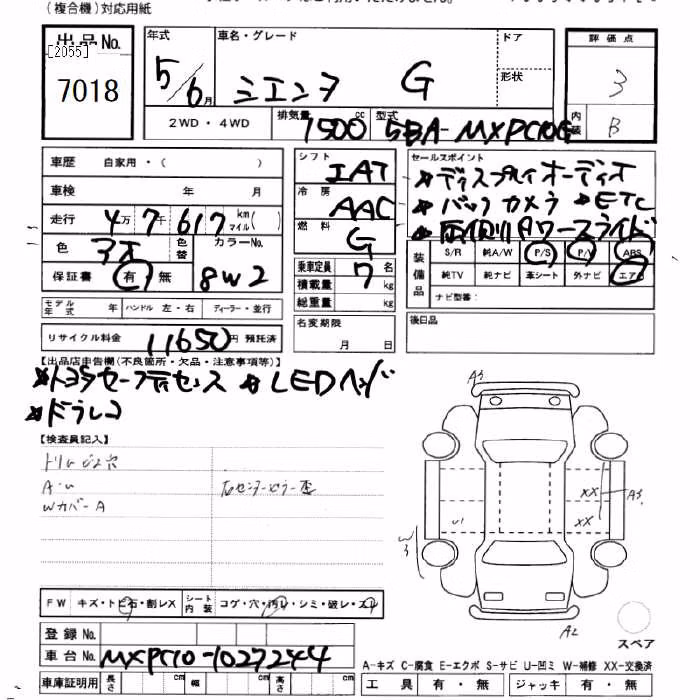 (複合機)対応用紙
出品No.
[2055]
7018
年式
5/6月
車名・グレード
シエンタ G
ドア
形状
評価点
3
内装
B
2WD・4WD
排気量 1500 cc
型式 5BA-MXPC10G
車歴 自家用・( )
車検 年 月
走行 4万7千617 km マイル( )
色 3オ
色替
カラーNo.
8W2
保証書 有 無
モデル年式 年 ハンドル 左・右 ディーラー・並行
リサイクル料金 11650円 預託済
シフト IAT
冷房 AAC
燃料 G
乗車定員 7 名
積載量 kg
総重量 kg
名変期限
月 日
セールスポイント
*ディスプレイオーディオ
*バックカメラ *ETC
*両側Pワースライド
装備品
S/R 純A/W P/S P/W ABS
純TV 純ナビ 革シート 外ナビ エアB
ナビ型番:
後日品
【出品店申告欄(不良箇所・欠品・注意事項等)】
*トヨタセーフティセンス *LEDヘッド
*ドラレコ
【検査員記入】
A・U
WカバーA
FW キズ・トビ石・割レX シート内装 コゲ・穴・汚レ・シミ・破レ・スレ
登録No.
車台No. MXPC10-1027244
車庫証明用 長さ cm 幅 cm 高さ cm
A3
XX
A3
XX
U1
W3
A2
スペア
A-キズ C-腐食 E-エクボ S-サビ U-凹ミ W-補修 XX-交換済
工具 有・無 ジャッキ 有・無